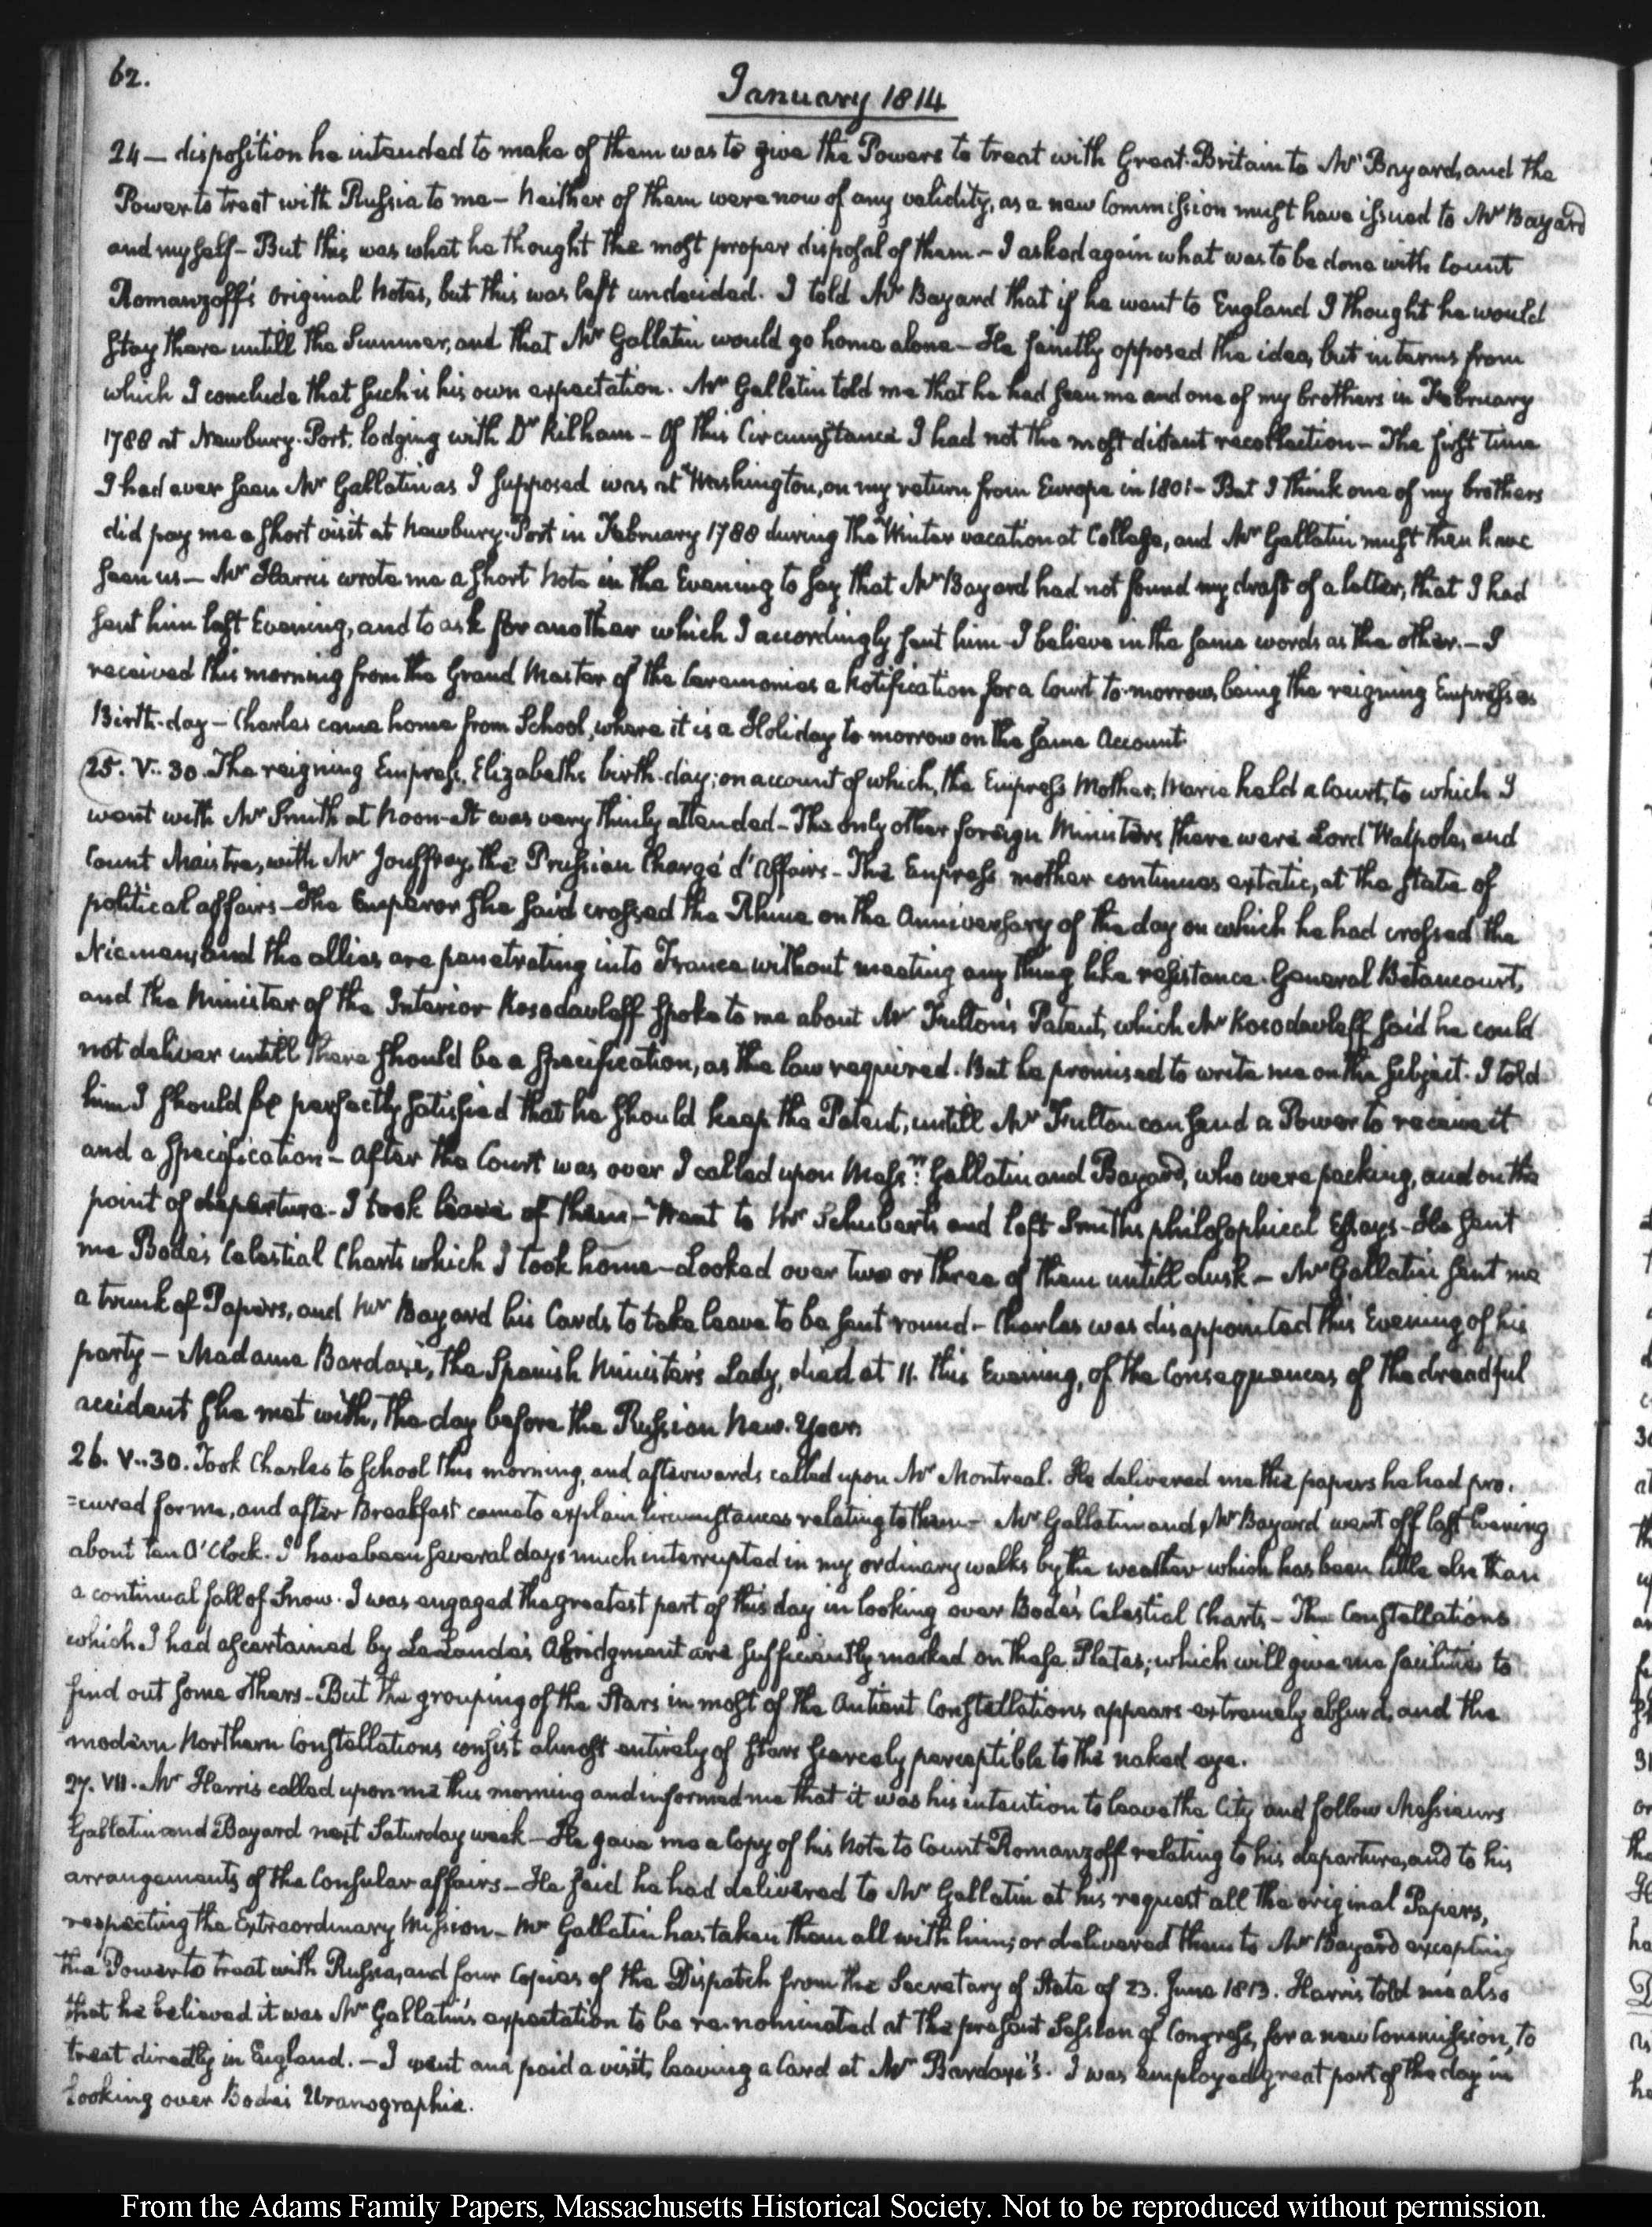 62.
January 1814
24 — disposition he intended to make of them was to give the Powers to treat with Great-Britain to Mr Bayard, and the
Power to treat with Russia to me — Neither of them were now of any validity, as a new Commission must have issued to Mr Bayard
and myself — But this was what he thought the most proper disposal of them — I asked again what was to be done with Count
Romanzoff's original Notes, but this was left undecided. I told Mr Bayard that if he went to England I thought he would
stay there untill the Summer, and that Mr Gallatin would go home alone — He faintly opposed the idea, but in terms from
which I conclude that such is his own expectation. Mr Gallatin told me that he had seen me and one of my brothers in February
1788 at Newbury-Port, lodging with Dr Kilham — Of this Circumstance I had not the most distant recollection — The first time
I had ever seen Mr Gallatin as I supposed was at Washington, on my return from Europe in 1801 — But I think one of my brothers
did pay me a short visit at Newbury-Port in February 1788 during the Winter vacation at College, and Mr Gallatin must then have
seen us — Mr Harris wrote me a short Note in the Evening to say that Mr Bayard had not found my draft of a letter, that I had
sent him last Evening, and to ask for another which I accordingly sent him I believe in the same words as the other. — I
received this morning from the Grand Master of the Ceremonies a Notification for a Court to-morrow, being the reigning Empress's
Birth-day — Charles came home from School, where it is a Holiday to morrow on the same Account.
25. V..30. The reigning Empress, Elizabeth's birth-day; on account of which, the Empress Mother, Marie held a Court, to which I
went with Mr Smith at Noon — It was very thinly attended — The only other foreign Ministers there were Lord Walpole, and
Count Maistre, with Mr Jouffroy, the Prussian Chargé d'Affairs — The Empress mother continues extatic, at the state of
political affairs — The Emperor she said crossed the Rhine on the Anniversary of the day on which he had crossed the
Niemen, and the allies are penetrating into France without meeting any thing like resistance. General Betancourt,
and the Minister of the Interior Kosodavleff spoke to me about Mr Fulton's Patent, which Mr Kosodavleff said he could
not deliver untill there should be a specification, as the law required. But he promised to write me on the subject. I told
him I should be perfectly satisfied that he should keep the Patent, untill Mr Fulton can send a Power to receive it
and a specification — After the Court was over I called upon Messrs. Gallatin and Bayard, who were packing, and on the
point of departure — I took leave of them — Went to Mr Schubert's and left Smith's philosophical Essays — He sent
me Bode's Celestial Charts which I took home — Looked over two or three of them untill dusk — Mr Gallatin sent me
a trunk of Papers, and Mr Bayard his Cards to take leave to be sent round — Charles was disappointed this Evening of his
party — Madame Bardaxi, the Spanish Minister's Lady, died at 11. this Evening, of the Consequences of the dreadful
accident she met with, the day before the Russian New-Year.
26. V..30. Took Charles to School this morning, and afterwards called upon Mr Montreal. He delivered me the papers he had pro-
=cured for me, and after Breakfast came to explain circumstances relating to them — Mr Gallatin and Mr Bayard went off last Evening
about ten O'Clock. I have been several days much interrupted in my ordinary walks by the weather which has been little else than
a continual fall of Snow. I was engaged the greatest part of this day in looking over Bode's Celestial Charts — The Constellations
which I had ascertained by LaLande's Abridgment are sufficiently marked on these Plates; which will give me facilities to
find out some others — But the grouping of the Stars in most of the Antient Constellations appears extremely absurd, and the
modern Northern Constellations consist almost entirely of Stars scarcely perceptible to the naked eye.
27. VII. Mr Harris called upon me this morning and informed me that it was his intention to leave the City and follow Messieurs
Gallatin and Bayard next Saturday week — He gave me a Copy of his Note to Count Romanzoff relating to his departure, and to his
arrangements of the Consular affairs — He said he had delivered to Mr Gallatin at his request all the original Papers,
respecting the Extraordinary Mission — Mr Gallatin has taken them all with him; or delivered them to Mr Bayard excepting
the Power to treat with Russia, and four Copies of the Dispatch from the Secretary of State of 23. June 1813. Harris told me also
that he believed it was Mr Gallatin's expectation to be re-nominated at the present Session of Congress, for a new Commission, to
treat directly in England. — I went and paid a visit, leaving a Card at Mr Bardaxi's. I was employed great part of the day in
looking over Bode's Uranographia.
From the Adams Family Papers, Massachusetts Historical Society. Not to be reproduced without permission.